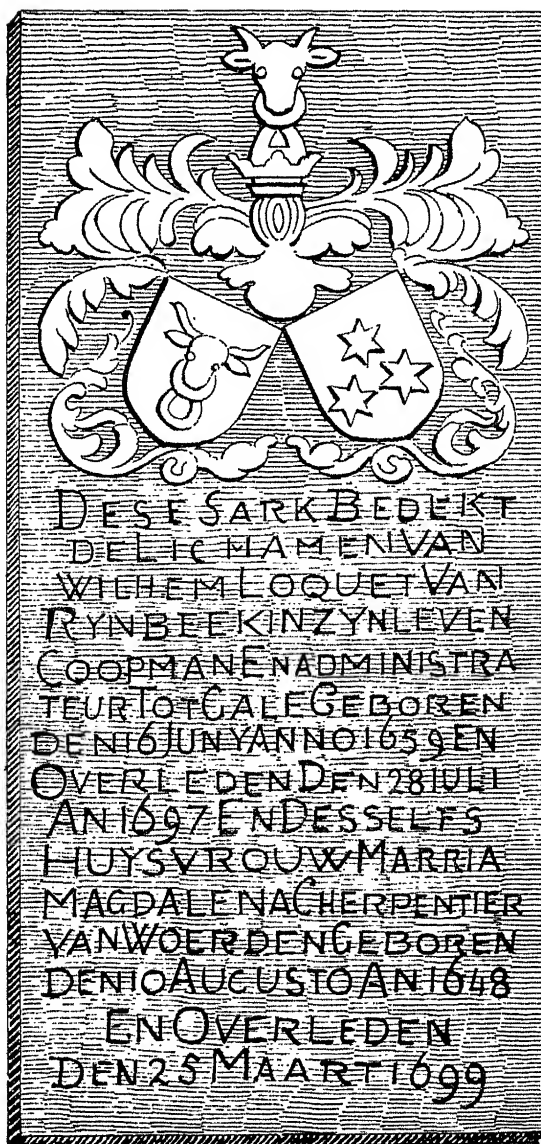 DESE SARK BEDEKT
DE LICHAMEN VAN
WILHEM LOQUET VAN
RYNBEEK IN ZYN LEVEN
COOPMAN EN ADMINISTRA
TEUR TOT GALE GEBOREN
DEN 16 JUNY ANNO 1659 EN
OVERLEDEN DEN 28 IULI
AN 1697 EN DESSELFS
HUYSVROUW MARRIA
MAGDALENA CHERPENTIER
VAN WOERDEN GEBOREN
DEN 10 AUGUSTO AN 1648
EN OVERLEDEN
DEN 25 MAART 1699